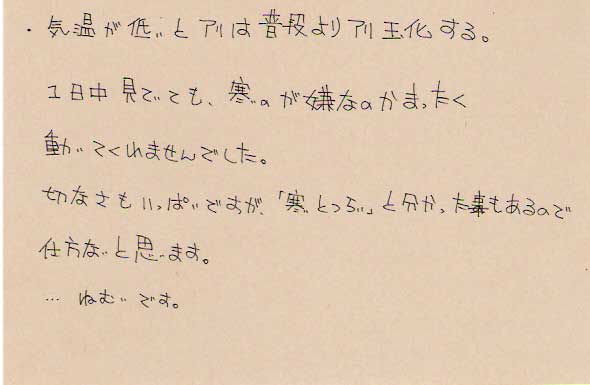 ・気温が低いとアリは普段よりアリ玉化する。
1日中見ていても、寒いのが嫌なのかまったく
動いてくれませんでした。
切なさもいっぱいですが、「寒いとつらい」と分かった事もあるので
仕方ないと思います。
… ねむいです。